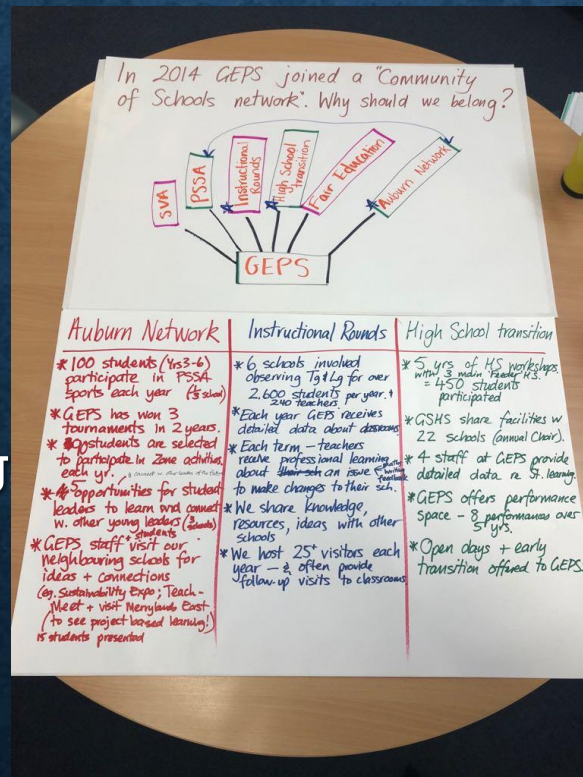 In 2014 GEPS joined a "Community
of Schools network". Why should we belong?
SVA
PSSA
Instructional
Rounds
High School
transition
Fair Education
Auburn Network
GEPS
Auburn Network
* 100 students (Yrs 3-6)
participate in PSSA
sports each year
* GEPS has won 3
tournaments in 2 years.
* students are selected
to participate in Zone activities
each yr.
* opportunities for student
leaders to learn and connect
w. other young leaders
* GEPS staff + students visit our
neighbouring schools for
ideas + connections
(eg. Sustainability Expo; Teach-
Meet + visit Merrylands East
(to see project based learning!)
15 students presented
Instructional Rounds
* 6 schools involved
observing Tg & Lg for over
2,600 students per year. &
240 teachers
* Each year GEPS receives
detailed data about classrooms
* Each term - teachers
receive professional learning
about their sch an issue
to make changes to their sch.
* We share knowledge,
resources, ideas with other
schools
* We host 25+ visitors each
year - & often provide
follow-up visits to classrooms
High School transition
* 5 yrs of HS workshops
with 3 main Feeder HS.
= 450 students
participated
* GSHS share facilities w
22 schools (annual Choir).
* 4 staff at GEPS provide
detailed data re St. learning
* GEPS offers performance
space - 8 performances over
5 yrs.
* Open days + early
transition offered to GEPS